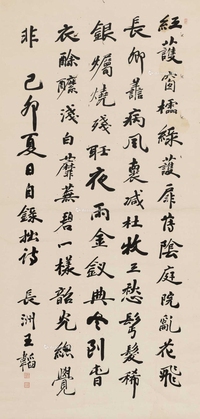 紅護窗櫺綠護扉停陰庭院亂花飛
長卿善病風減杜牧工愁鬢髮稀
銀燭燒殘聽夜雨金釵典到春
衣酴醾淺白蘼蕪碧一樣韶光總覺
非 己卯夏日自錄拙詩 長洲王韜